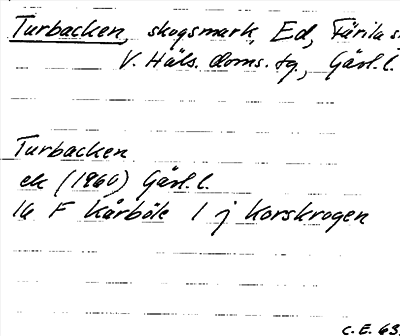 Turbacken, skogsmark, Ed, Färila s.
V. Häls. doms. tg., Gävl. l.
Turbacken
ek (1960) Gävl. l.
16 F Kårböle 1 j Korskrogen
C. E. 63